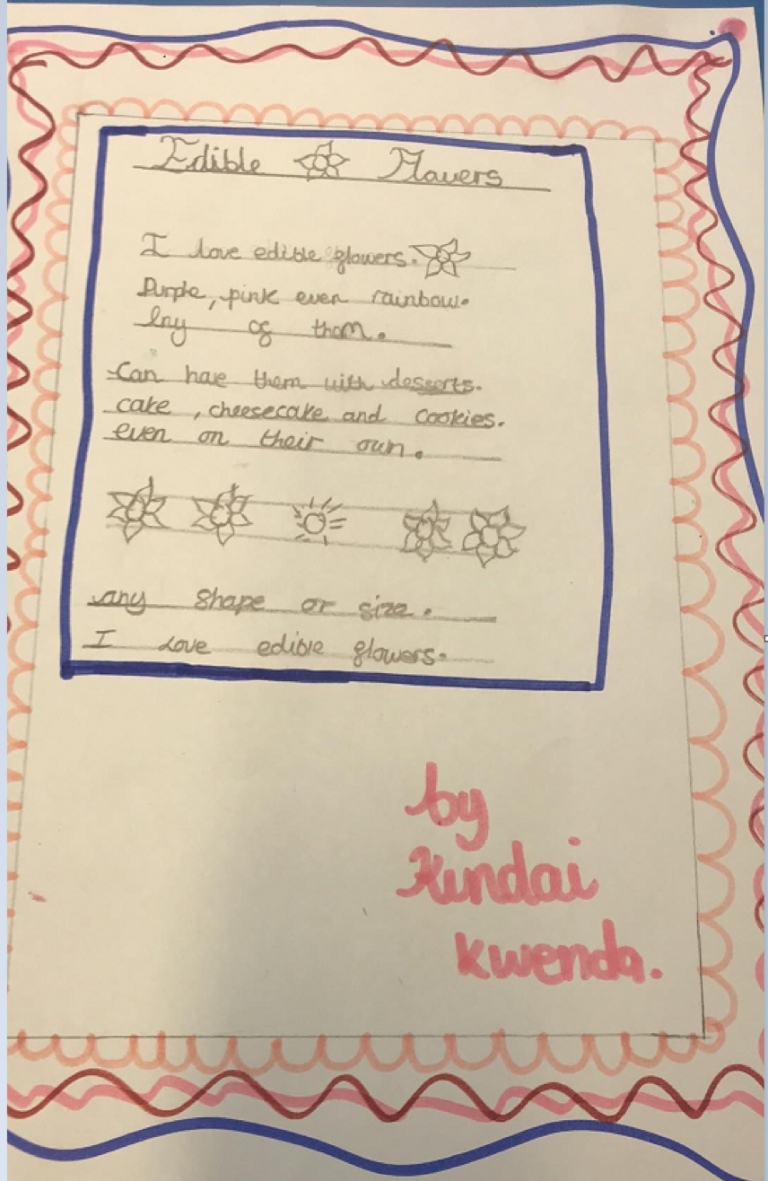 Edible Flauers
I love edible flowers.
Purple, pink even rainbow.
lny of thom.
Can have them with desserts.
cake, cheesecake and cookies.
even on their own.
any shape or size.
I Love edible flowers.
by
Kundai
kwenda.